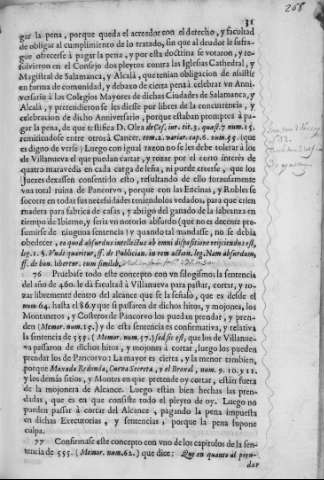 31
gar la pena, porque queda el acreedor con el derecho, y facultad
de obligar al cumplimiento de lo tratado, sin que al deudor le sufra-
gue ofrecerse à pagar la pena, y por esta doctrina se votaron, y re-
solvieron en el Consejo dos pleytos contra las Iglesias Cathedral, y
Magistral de Salamanca, y Alcalà, que tenian obligacion de assistir
en forma de comunidad, y debaxo de cierta pena à celebrar vn Ani-
versario à los Colegios Mayores de dichas Ciudades de Salamanca, y
Alcalà, y pretendieron se les diesse por libres de la concurrencia, y
celebracion de dicho Aniversario, porque estaban promptos à pa-
gar la pena, de que testifica D. Olea de Ces. iur. tit. 3. quæst. 7. num. 15.
remitiendose entre otros à Cancer. tom. 2. variar. cap. 6. num. 59. (que
es digno de verse) Luego con igual razon no se les debe tolerar à los
de Villanueva el que puedan cortar, y rozar por el corto interès de
quatro maravedis en cada carga de leña, ni puede creerse, que los
Juezes dexassen consentido esto, resultando de ello forzosamente
vna total ruina de Pancorvo, porque con las Encinas, y Robles se
socorre en todas sus necesidades teniendolos vedados, para que crien
madera para fabrica de casas, y abrigo del ganado de la labranza en
tiempo de Ibierno, y seria vn notorio absurdo (que no es decente pre-
sumirse de ninguna sentencia) y quando tal mandasse, no se debia
obedecer, eo quod absurdus intellectus ab omni dispositione reijciendus est,
leg. 1. §. Vnde quæritur, ff. de Publician. in rem action. leg. Nam absurdum,
ff. de bon. libertor. cum simil.
76 Pruebase todo este concepto con vn silogismo: la sentencia
del año de 460. le dà facultad à Villanueva para pastar, cortar, y ro-
zar libremente dentro del alcance que se la señalo, que es desde el
num. 64. hasta el 86. y que si passaren de dichos hitos, y mojones, los
Montaneros, y Costeros de Pancorvo los puedan prendar, y pren-
den (Memor. num. 15.) y de esta sentencia es confirmativa, y relativa
la sentencia de 555. (Memor. num. 57.) sed sic est, que los de Villanue-
va passaron de dichos hitos, y mojones à cortar, luego los pueden
prendar los de Pancorvo: La mayor es cierta, y la menor tambien,
porque Mazada Redonda, Cueva Secreta, y el Breñal, num. 9. 10. y 11.
y los demàs sitios, y Montes en que pretende oy cortar, estàn fuera
de la mojonera de Alcance. Luego estàn bien hechas las pren-
dadas, que es en que consiste todo el pleyto de oy. Luego no
pueden passar à cortar del Alcance, pagando la pena impuesta
en dichas Executorias, y sentencias, porque la pena supone
culpa.
77 Confirmase este concepto con vno de los capitulos de la sen-
tencia de 555. (Memor. num. 62.) que dice: Que en quanto al pren-
dar